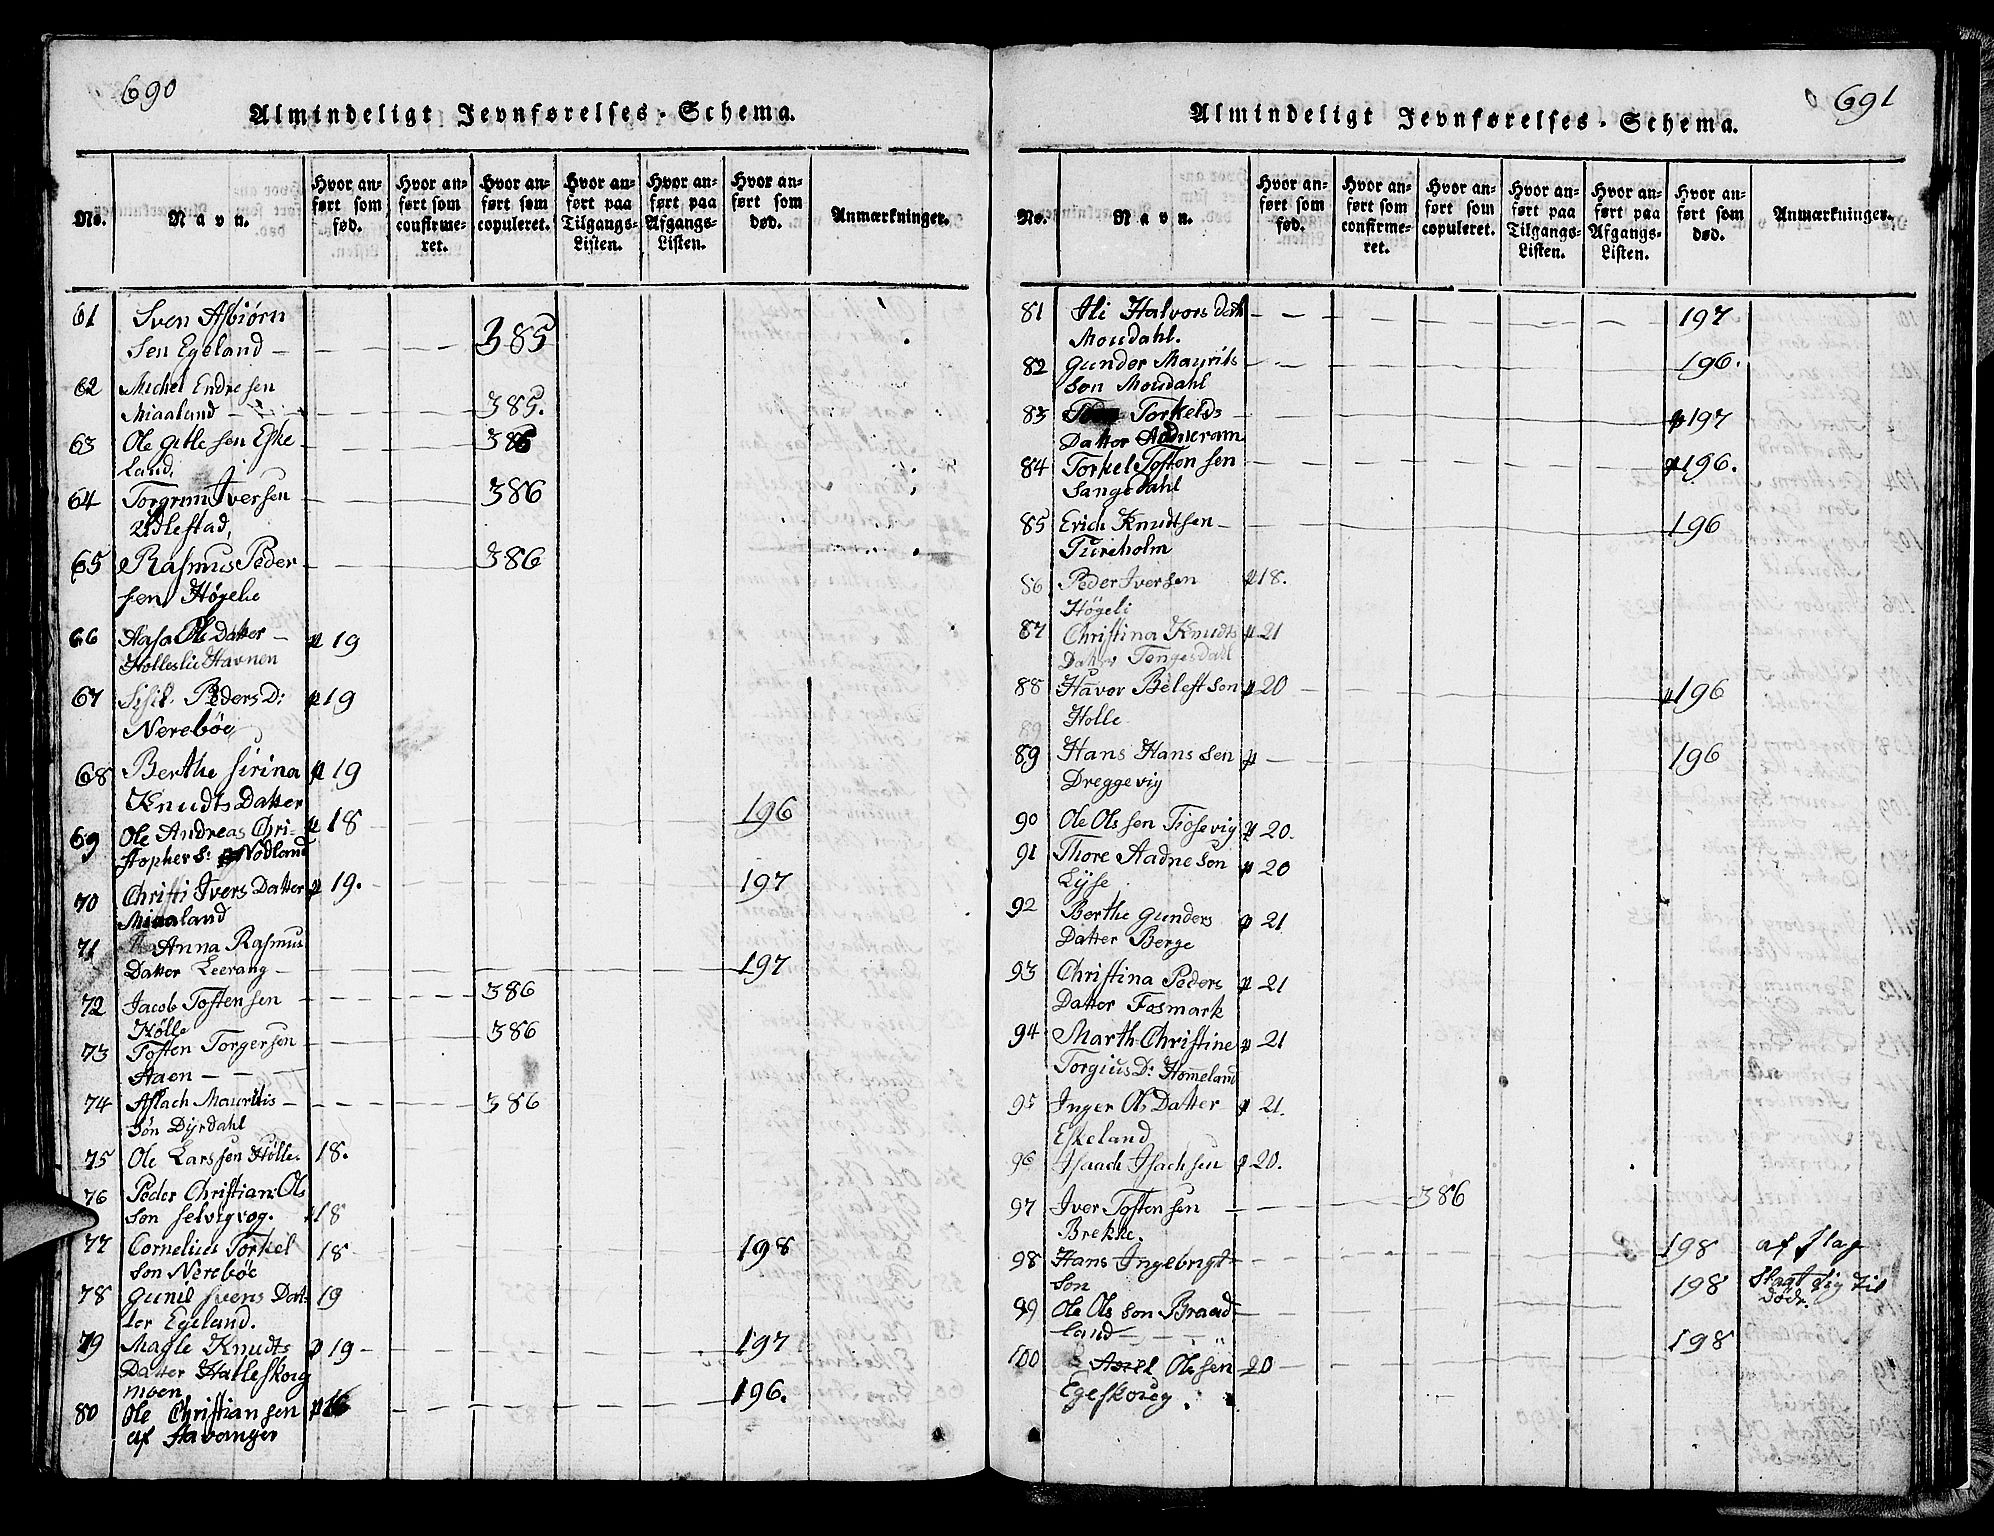 690
Almindeligt Jevnførelses-Schema.
No.
Navn.
Hvor anført som fød.
Hvor anført som confirmeret.
Hvor anført som copuleret.
Hvor anført paa Tilgangs-Listen.
Hvor anført paa Afgangs-Listen.
Hvor anført som død.
Anmærkninger.
61 Sven Asbiørn
sen Egeland — 385
62 Michel Endresen
Miaaland — 385.
63 Ole Gitlesen Eske 386
land,
64 Torgrim Iversen 386
Udlestad,
65 Rasmus Peder 386
sen, Høgelie
66 Aasa Ols Datter — p 19
Hølleslie Havnen
67 Sisil Peders D: p 19
Nerebøe
68 Berthe Sirina p 19
Knudts Datter
69 Ole Andreas Chri- p 18 196
stopher S: Nodland
70 Christi Ivers Datter p 19. 197
Miaaland
71 Anna Rasmus
Datter Leerang — 197
72 Jacob Tostensen 386
Hølle
73 Tosten Torgersen 386
Haen — — —
74 Aslach Mauritis — 386
Søn Dyrdahl
75 Ole Larssen Hølle. 18.
76 Peder Christian: Ols
søn Selvigvog. 18
77 Cornelius Torkel 18 198
Søn Nerebøe
78 Gunil Svens Dat- 19
ter Egeland.
79 Magle Knudts p 19 197
Datter Hatleskog
moen
80 Ole Christiansen p 16 196.
af Stavanger
691
Almindeligt Jevnførelses-Schema.
No.
Navn.
Hvor anført som fød.
Hvor anført som confirmeret.
Hvor anført som copuleret.
Hvor anført paa Tilgangs-Listen.
Hvor anført paa Afgangs-Listen.
Hvor anført som død.
Anmærkninger.
81 Ili Halvors Datt 197
Moudahl.
82 Gunder Mauritz 196.
søn Moudahl
83 Torkelds p 197
Datter Aadneram
84 Torkel Tostensen p 196.
Sangesdahl
85 Erich Knudtsen — 196
Tureholm
86 Peder Iversen p 18.
Høgeli
87 Christina Knudts p 21
Datter Tengesdall
88 Havor Beleftsøn p 20 p 196
Holle
89 Hans Hanssen p 196
Dreggevig
90 Ole Olssen Fiosevig p 20.
91 Thore Aadnesøn p 20
Lyse
92 Berthe Gunders p 21
Datter Berge
93 Christina Peders p 21
Datter Fosmark
94 Marth Christine p 21
Torgius D: Hommeland
95 Inger Ols Datter p 21.
Eskeland
96 Isaach Isachsen p 20.
97 Iver Tostensen 386
Brekke.
98 Hans Ingebrigt 198 af Slag
søn
99 Ole Olssøn Braad 198 Slagt sig til Døde.
land — 198
100 Axel Olssen 20
Egeskoug